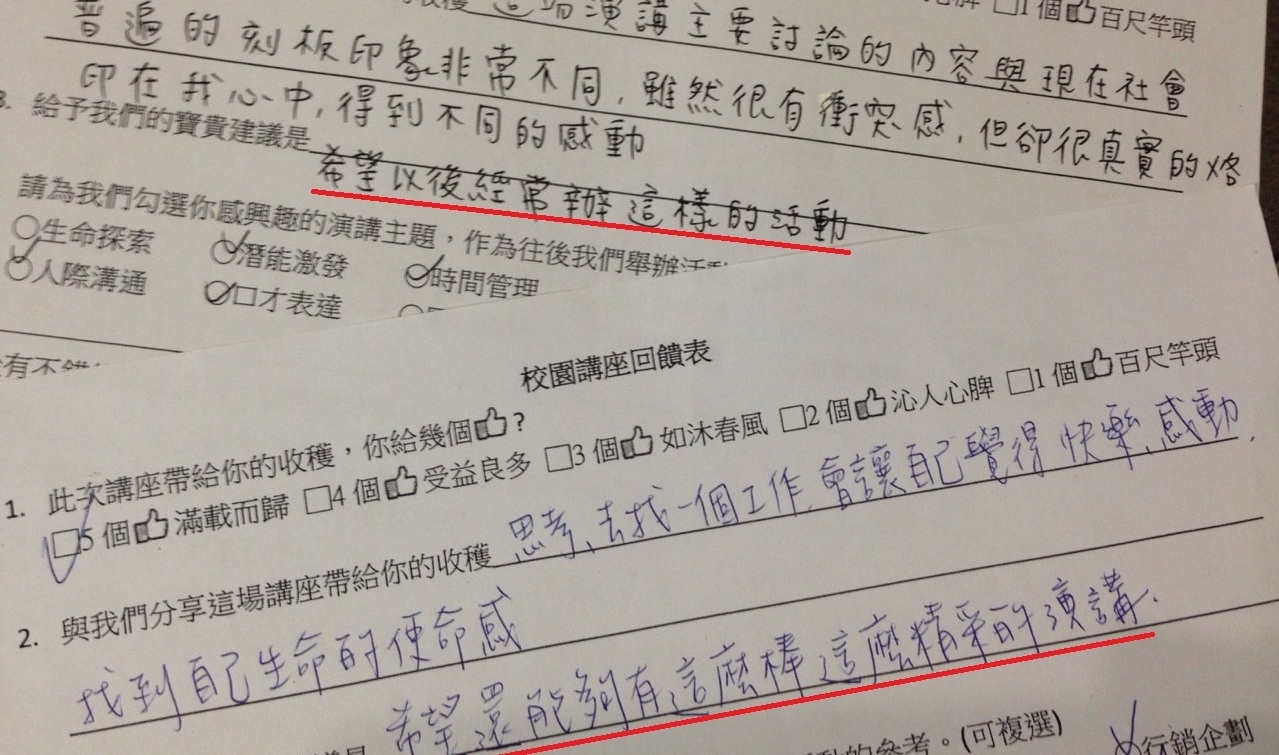 這場演講主要討論的內容與現在社會
□1 個👍百尺竿頭
普遍的刻板印象非常不同，雖然很有衝突感，但卻很真實的烙
印在我心中，得到不同的感動
3. 給予我們的寶貴建議是 希望以後經常辦這樣的活動
請為我們勾選你感興趣的演講主題，作為往後我們舉辦活動
○生命探索 ○潛能激發 ○時間管理
○人際溝通 ○口才表達
校園講座回饋表
1. 此次講座帶給你的收穫，你給幾個👍?
□5 個👍滿載而歸 □4 個👍受益良多 □3 個👍如沐春風 □2 個👍沁人心脾 □1 個👍百尺竿頭
2. 與我們分享這場講座帶給你的收穫 思考、去找一個工作，會讓自己覺得快樂、感動，
找到自己生命的使命感
希望還能夠有這麼棒這麼精采的演講.
的參考。(可複選)
行銷企劃